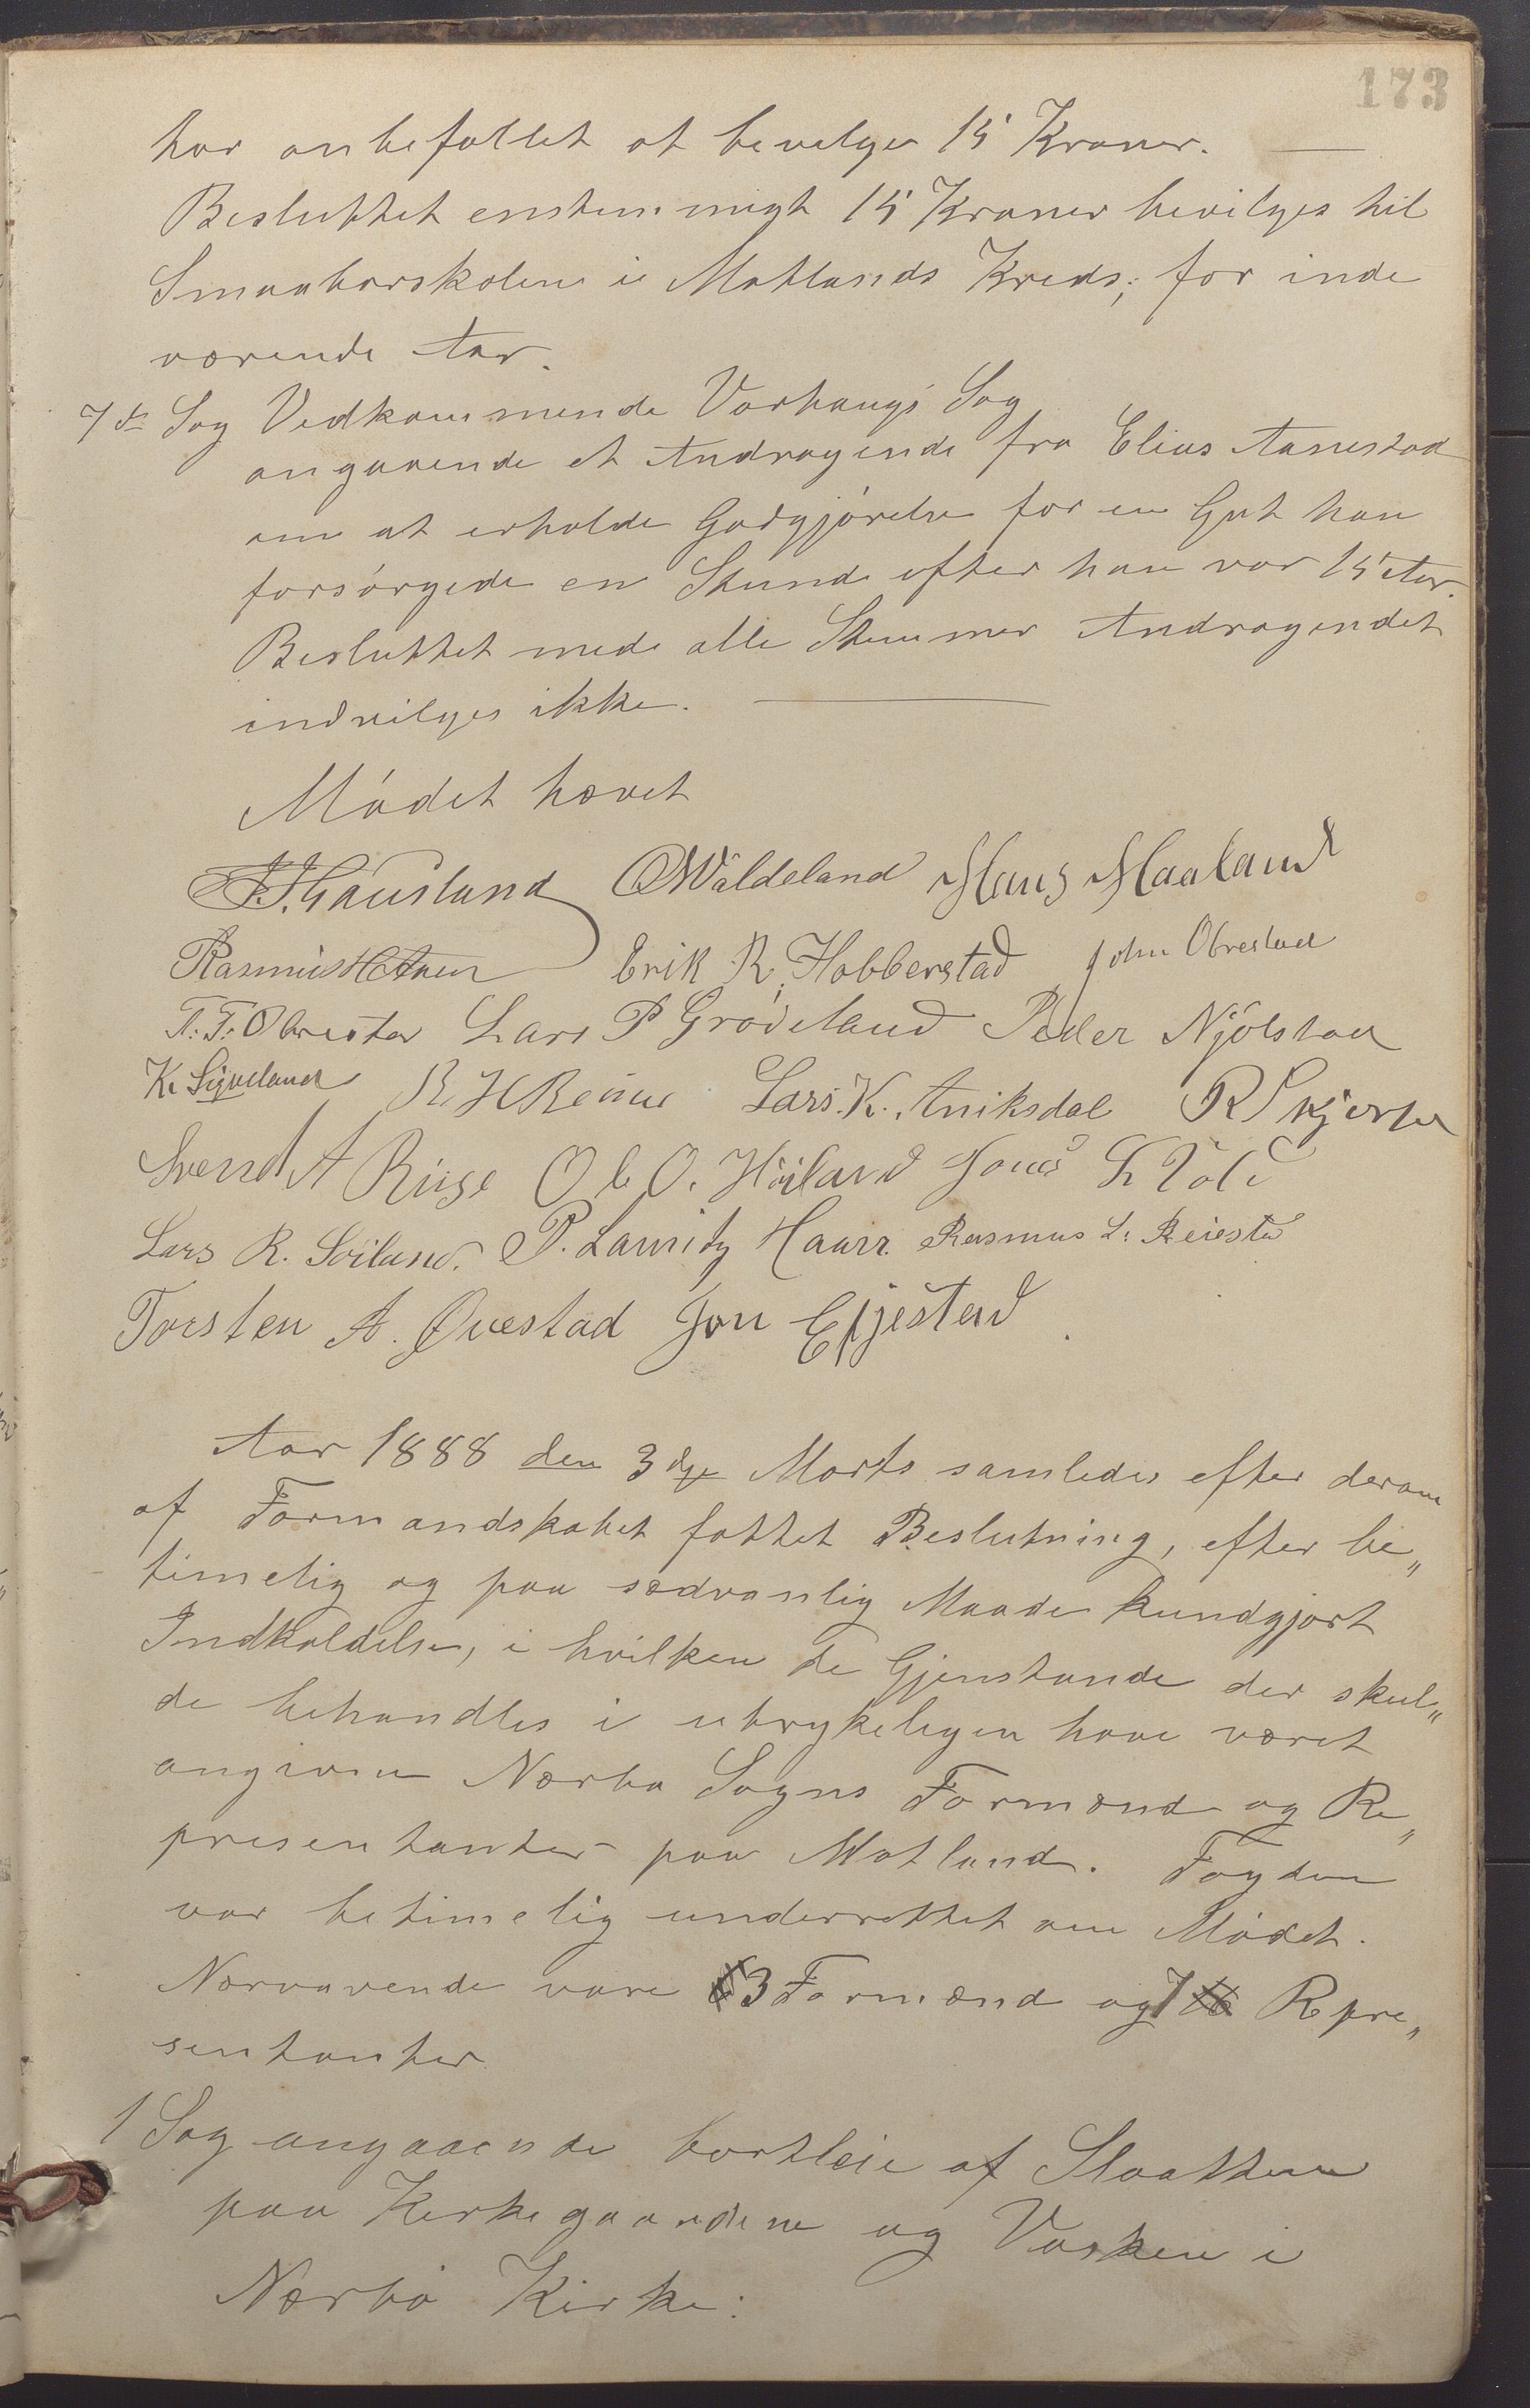 173
har anbefallet at bevilge 15 Kroner. —
Besluttet enstemmigt 15 Kroner bevilges til
Smaabarskolen i Motlands Kreds; for inde
værende Aar.
7de Sag Vedkommende Varhaugs Sog
angaaende et Andragende fra Elias Aanestad
om at erholde Godgjørelse for en Gut han
forsørgede en Stund efter han var 15 Aar.
Besluttet med alle Stemmer Andragendet
indvilges ikke. —
Mødet hævet
Gausland OWäldeland Hans Haaland
Rasmus H Erik R, Hobberstad John Obrestad
T. T. Obrestad Lars P Grødeland Peder Njølstad
K. Sigveland R. H Reime Lars. K. Aniksdal R Skjerpe
Svend A Ringe Ole O. Høiland Jonas
Lars R. Söiland. P. Lauritz Haarr. Rasmus L. Reiestad
Torsten A. Øvestad Jon Efjestad
Aar 1888 den 3dje Marts samledes efter derom
af Formandskabet fattet Beslutning, efter be„
timelig og paa sædvanlig Maade kundgjort
Indkaldelse, i hvilken de Gjenstande der skul„
de behandles i utrykeligen have været
angivne Nærbø Sogns Formænd og Re„
presentanter paa Motland. Fogden
var betimelig underrettet om Mødet.
Nærværende vare 3 Formænd og 7 Repre„
sentanter
1 Sag angaaende bortleie af Slaatten
paa Kirkegaardene og Vasken i
Nærbø Kirke: